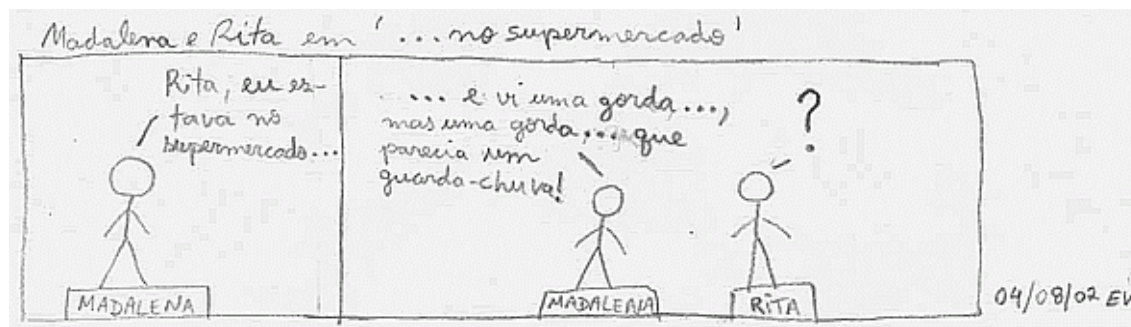 Madalena e Rita em '...no supermercado'
Rita, eu es-
tava no
supermercado...
MADALENA
... e vi uma gorda...,
mas uma gorda,... que
parecia um
guarda-chuva!
?
MADALENA
RITA
04/08/02